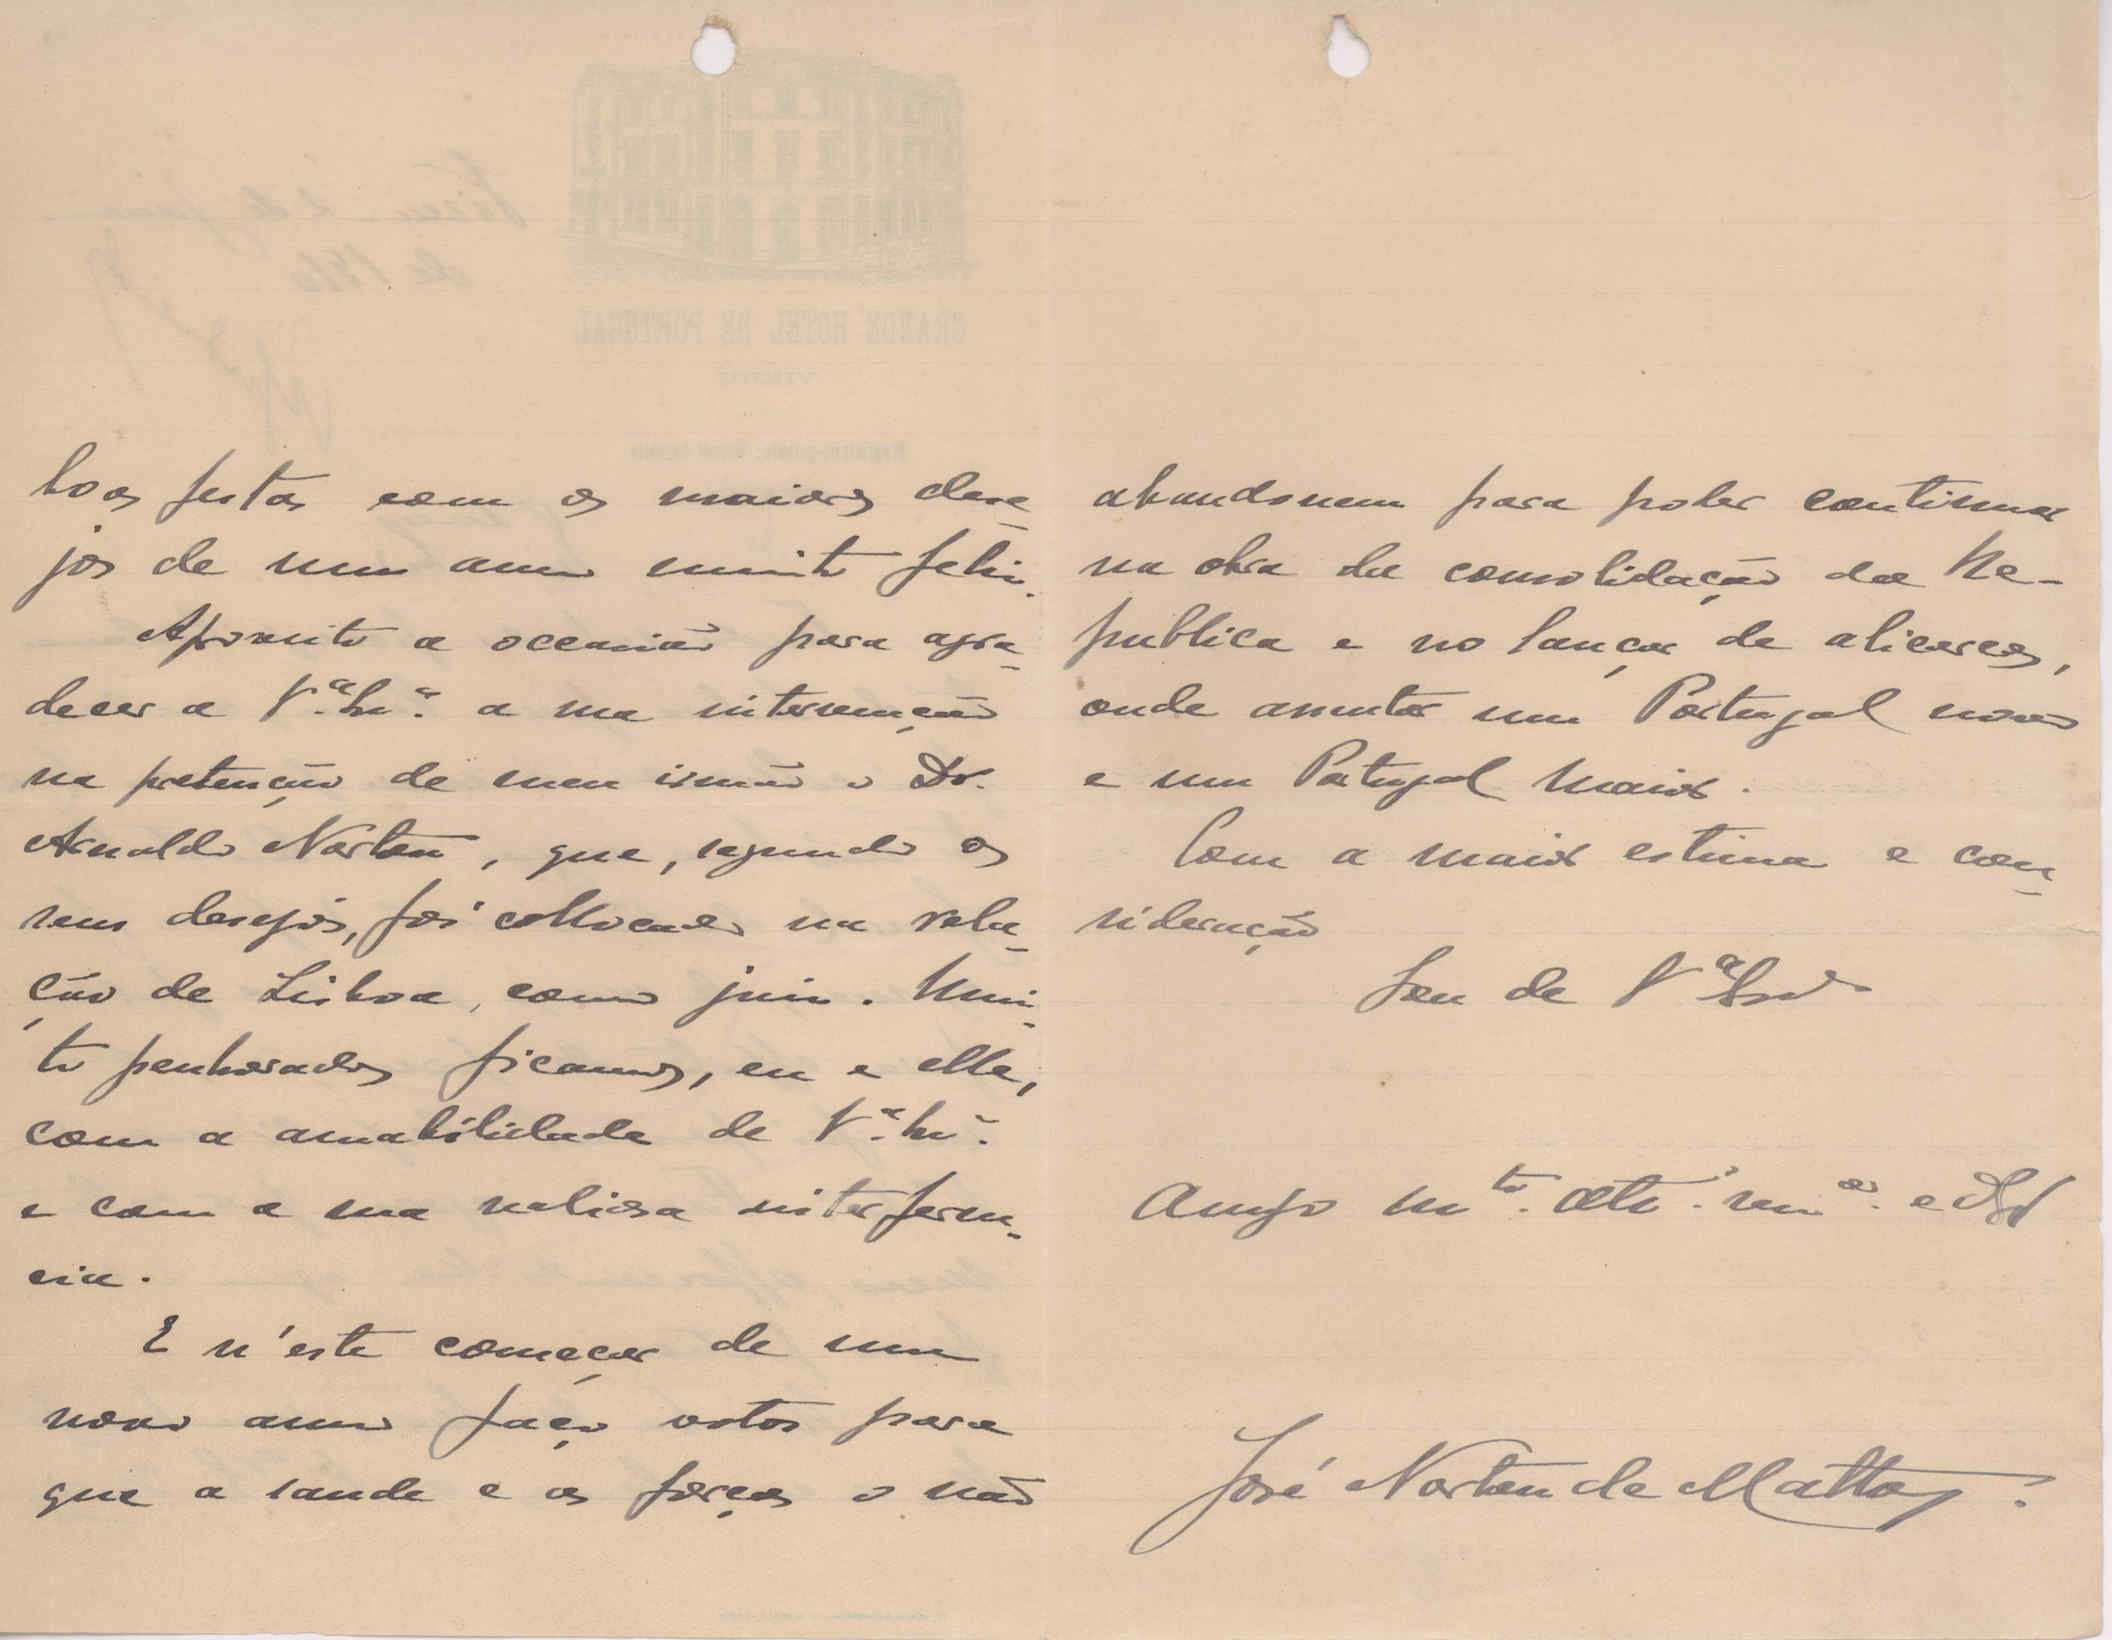 boas festas com os maiores dese-
jos de um anno muito feliz.
Aproveito a occasião para agra-
decer a V.ª Ex.ª a sua intervenção
na pretenção de meu irmão o Dr.
Arnaldo Norton, que, segundo os
seus desejos, foi collocado na rela-
ção de Lisboa, como juiz. Mui-
to penhorados ficamos, eu e elle,
com a amabilidade de V.ª Ex.ª
e com a sua valiosa interferen-
cia.
E n'este começar de um
novo anno faço votos para
que a saude e as forças o não
abandonem para poder continuar
na obra da consolidação da Re-
publica e no lançar de alicerces,
onde assentar um Portugal novo
e um Portugal maior.
Com a maior estima e con-
sideração
Sou de V.ª Ex.ª
Amigo m.to att.º e
José Norton de Mattos.
GRANDE HOTEL DE PORTUGAL
VIZEU